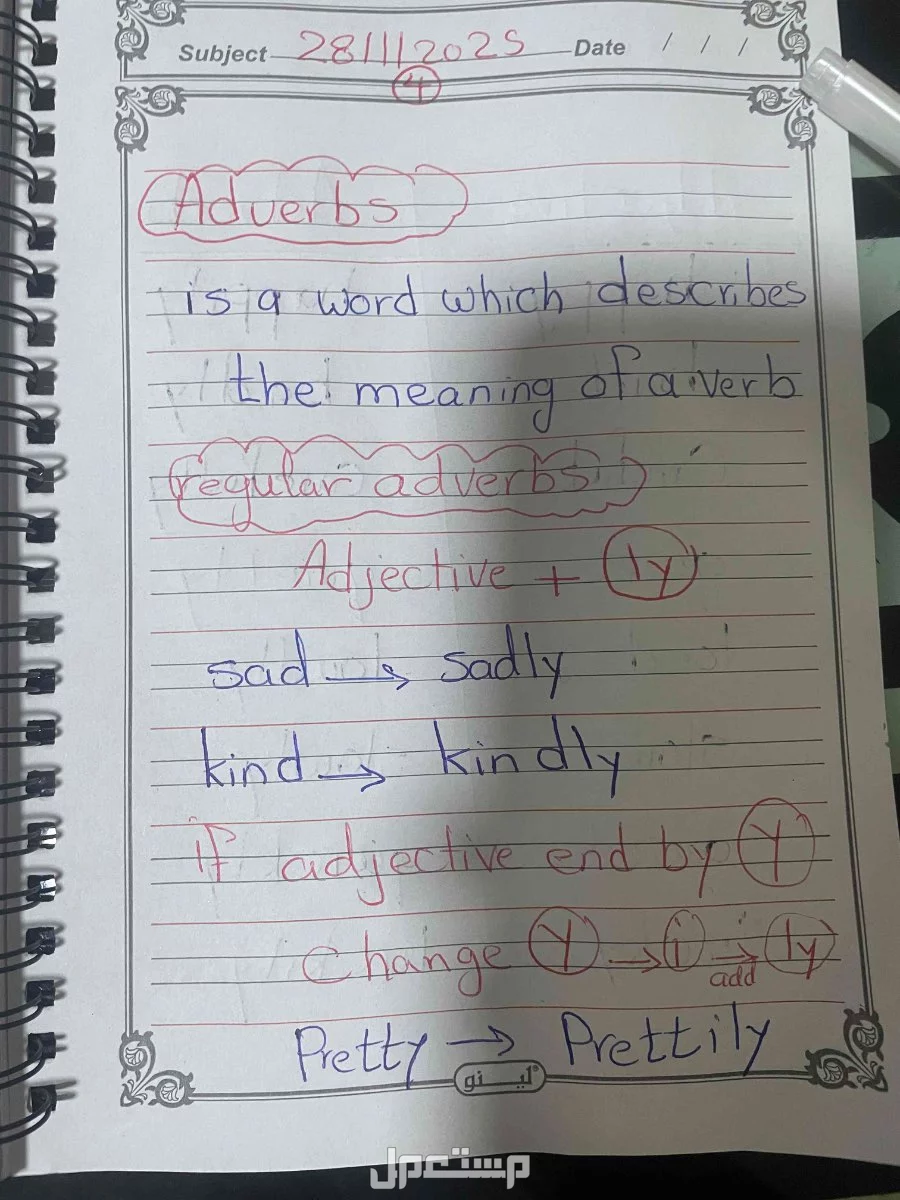 Subject 28/11/2025 Date / / /
4
Adverbs
is a word which describes
the meaning of a verb
regular adverbs
Adjective + ly
sad → sadly
kind → kindly
if adjective end by Y
change Y → i → ly
add
Pretty → Prettily
لينو
مستعمل